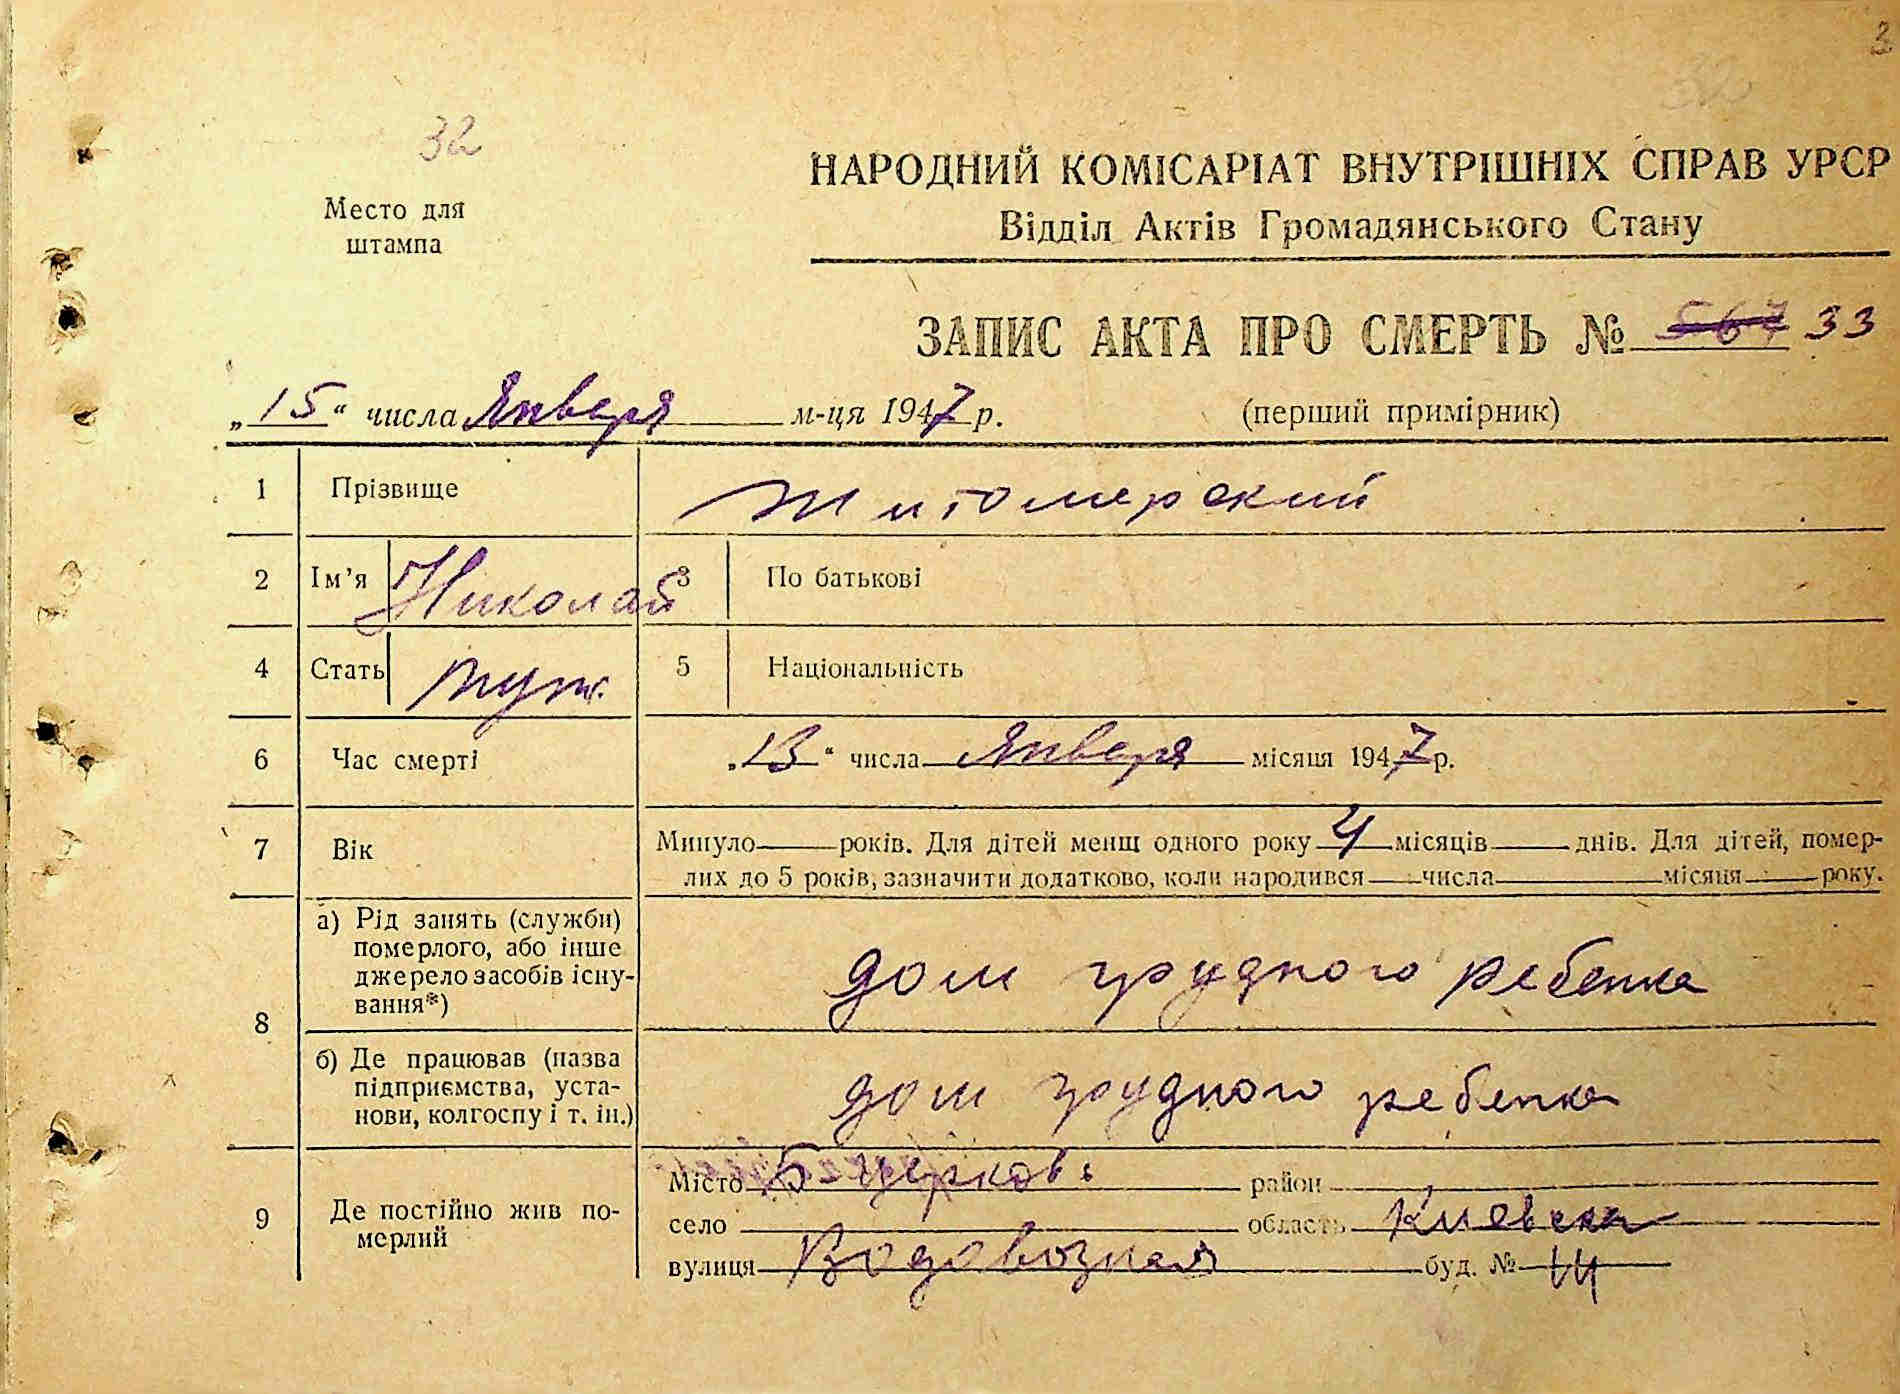 3
32
32
Место для
штампа
НАРОДНИЙ КОМІСАРІАТ ВНУТРІШНІХ СПРАВ УРСР
Відділ Актів Громадянського Стану
ЗАПИС АКТА ПРО СМЕРТЬ № 567 33
„15“ числа Января м-ця 1947 р.
(перший примірник)
1 Прізвище Житомирский
2 Ім’я Николай 3 По батькові
4 Стать муж. 5 Національність
6 Час смерті „13“ числа Января місяця 1947 р.
7 Вік Минуло років. Для дітей менш одного року 4 місяців днів. Для дітей, помер-
лих до 5 років, зазначити додатково, коли народився числа місяця року.
8
а) Рід занять (служби)
померлого, або інше
джерело засобів існу-
вання*)
дом грудного ребенка
б) Де працював (назва
підприємства, уста-
нови, колгоспу і т. ін.)
дом грудного ребенка
9 Де постійно жив по-
мерлий
Місто Б-Церковь район
село область Киевская
вулиця Водовозная буд. № 14